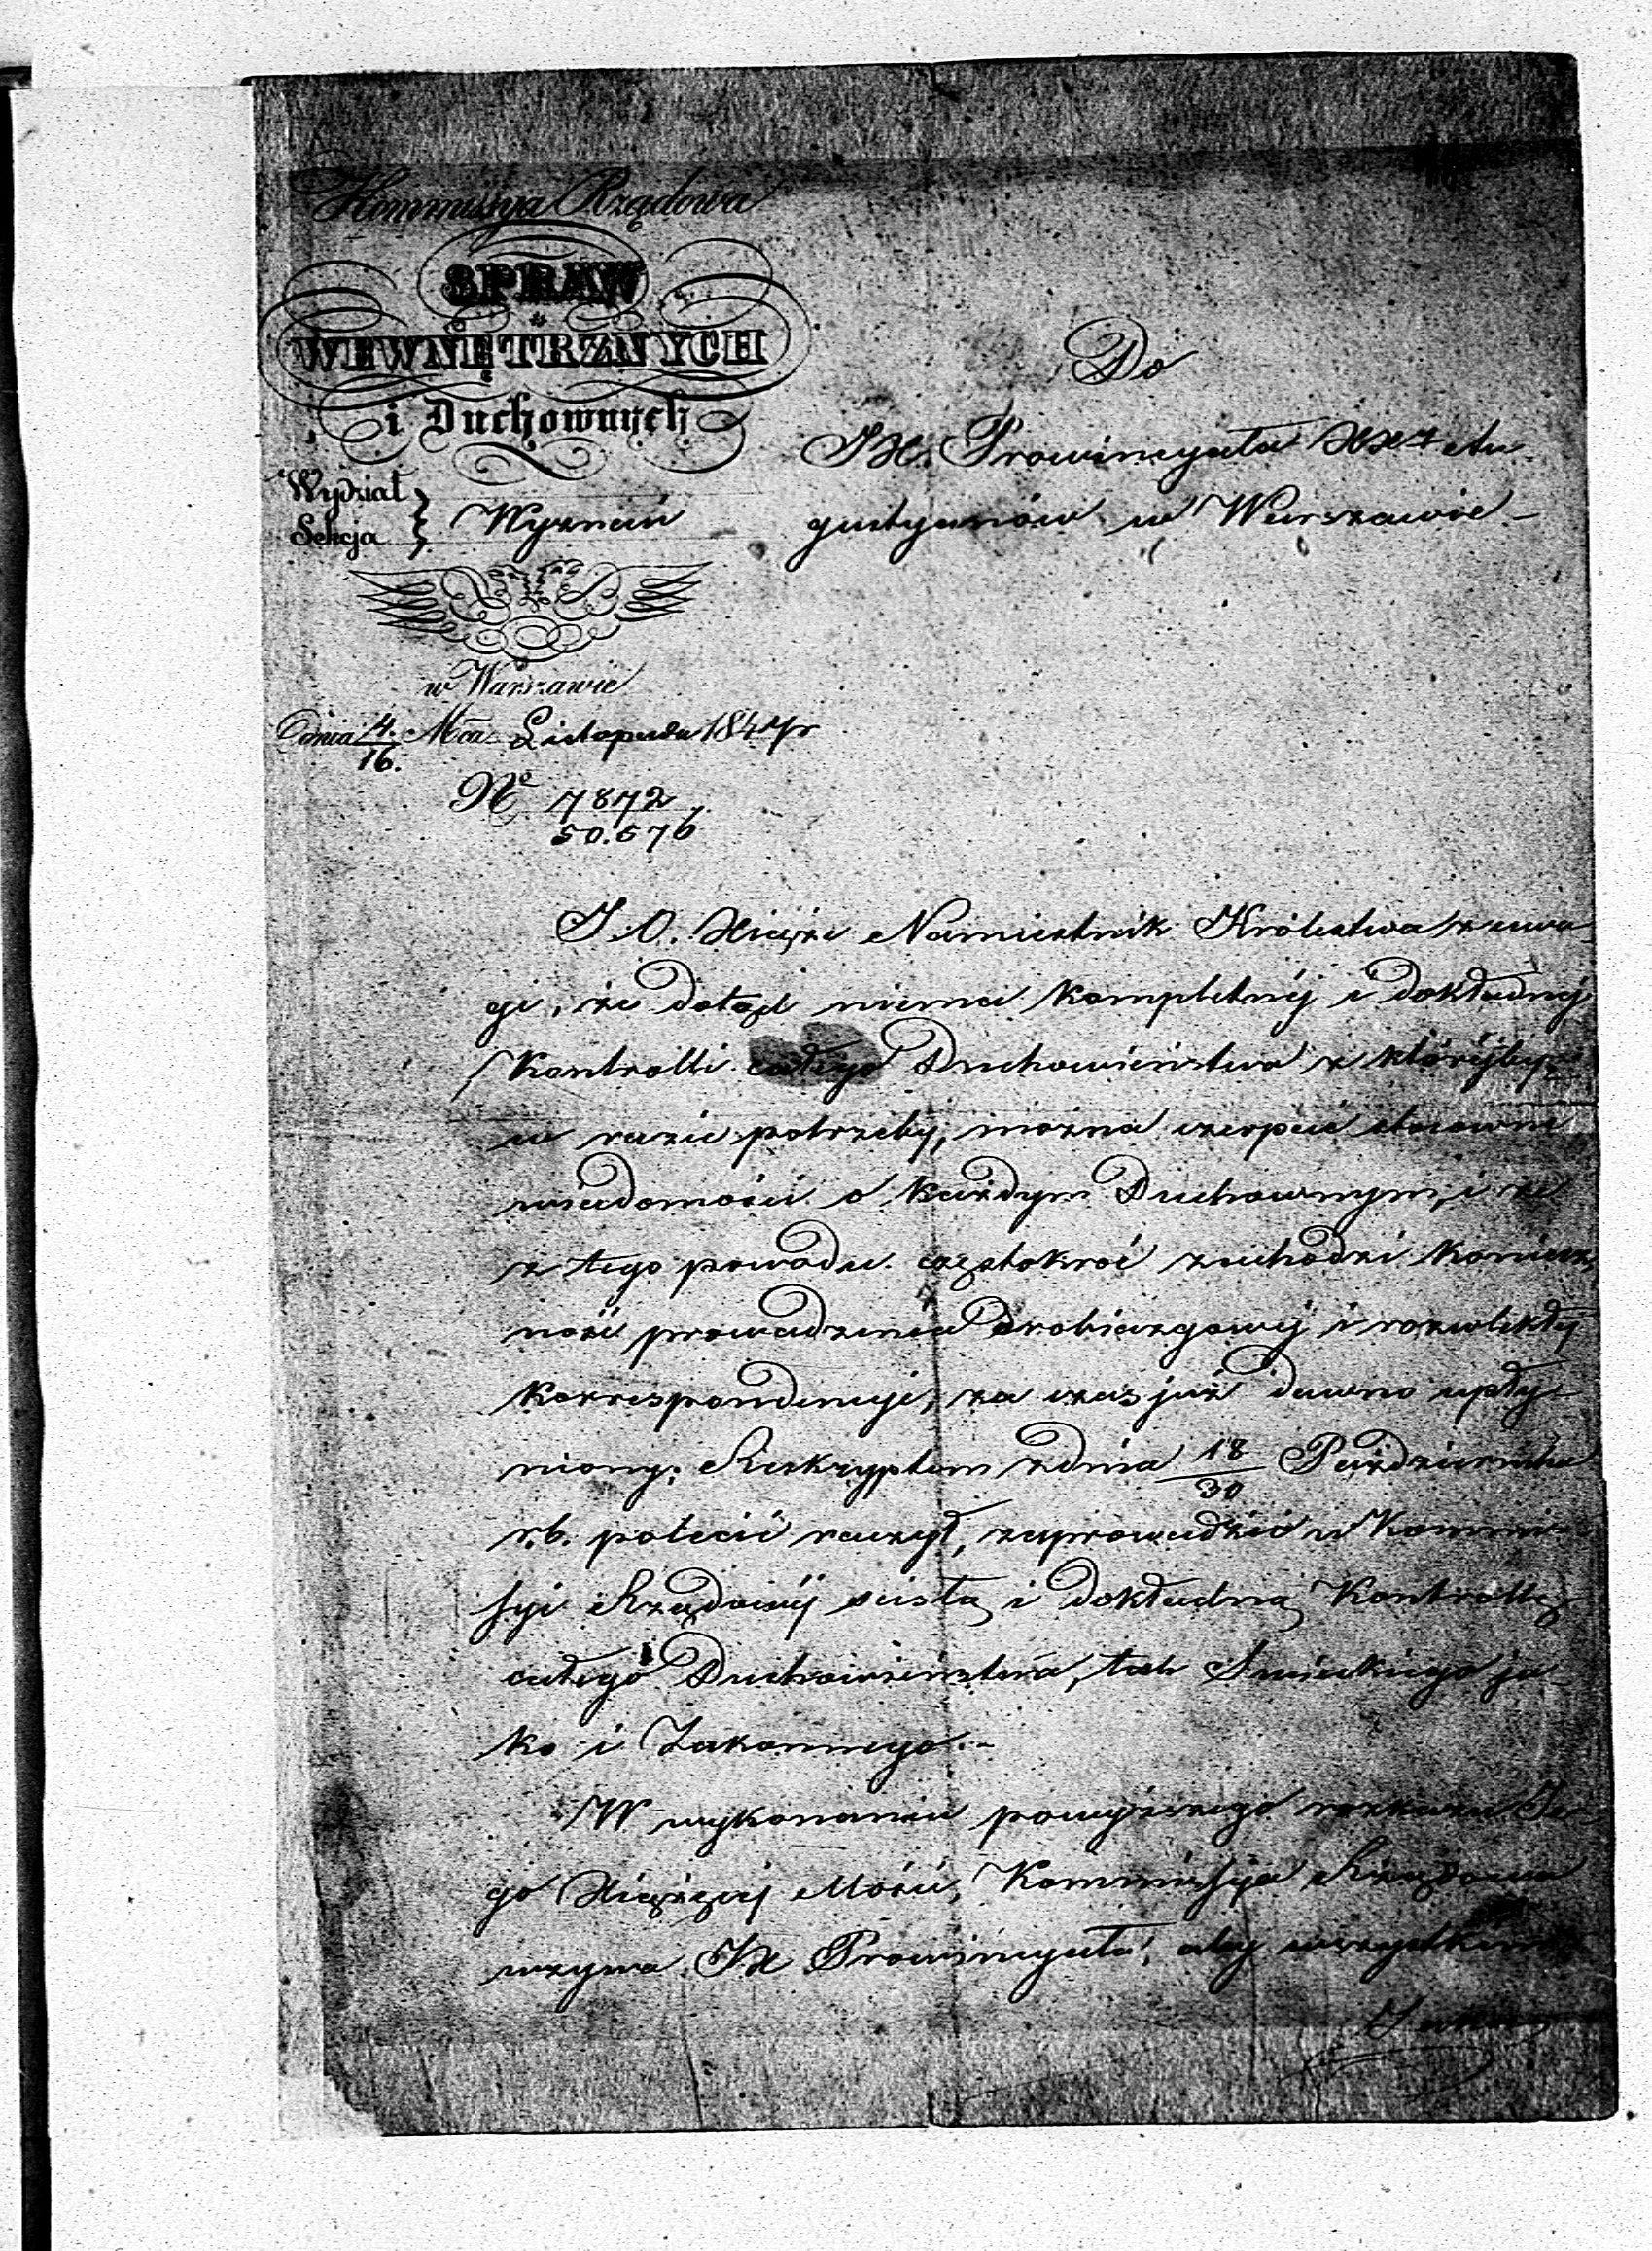 Kommissya Rządowa
SPRAW
WEWNĘTRZNYCH
i Duchownych
Wydział
Sekcja } Wyznań
w Warszawie
Dnia 4./16. Mca Listopada 1847 r
No 7872/50.576
Do
JX. Prowincyała XXży Au-
gustyanów w Warszawie.
J.O. Xiąże Namiestnik Królestwa z uwa-
gi, że dotąd niema kompletnéj i dokładnéj
Kontrolli całego Duchowieństwa z któréjby,
w razie potrzeby, można czerpać stosowne
wiadomości o każdym Duchownym, i że
z tego powodu częstokroć zachodzi koniecz-
ność prowadzenia drobiazgowéj i rozwlekłéj
korrespondencyi, za czas już dawno upły-
niony; Reskryptem z dnia 18/30 Października
r.b. polecić raczył, zaprowadzić w Kommis-
syi Rządowéj scisłą i dokładną Kontrollę
całego Duchowieństwa, tak Swieckiego ja-
ko i Zakonnego.-
W wykonaniu powyższego rozkazu Je-
go Xiążęcej Mości, Kommissya Rządowa
wzywa JX Prowincyała, aby wszystkim